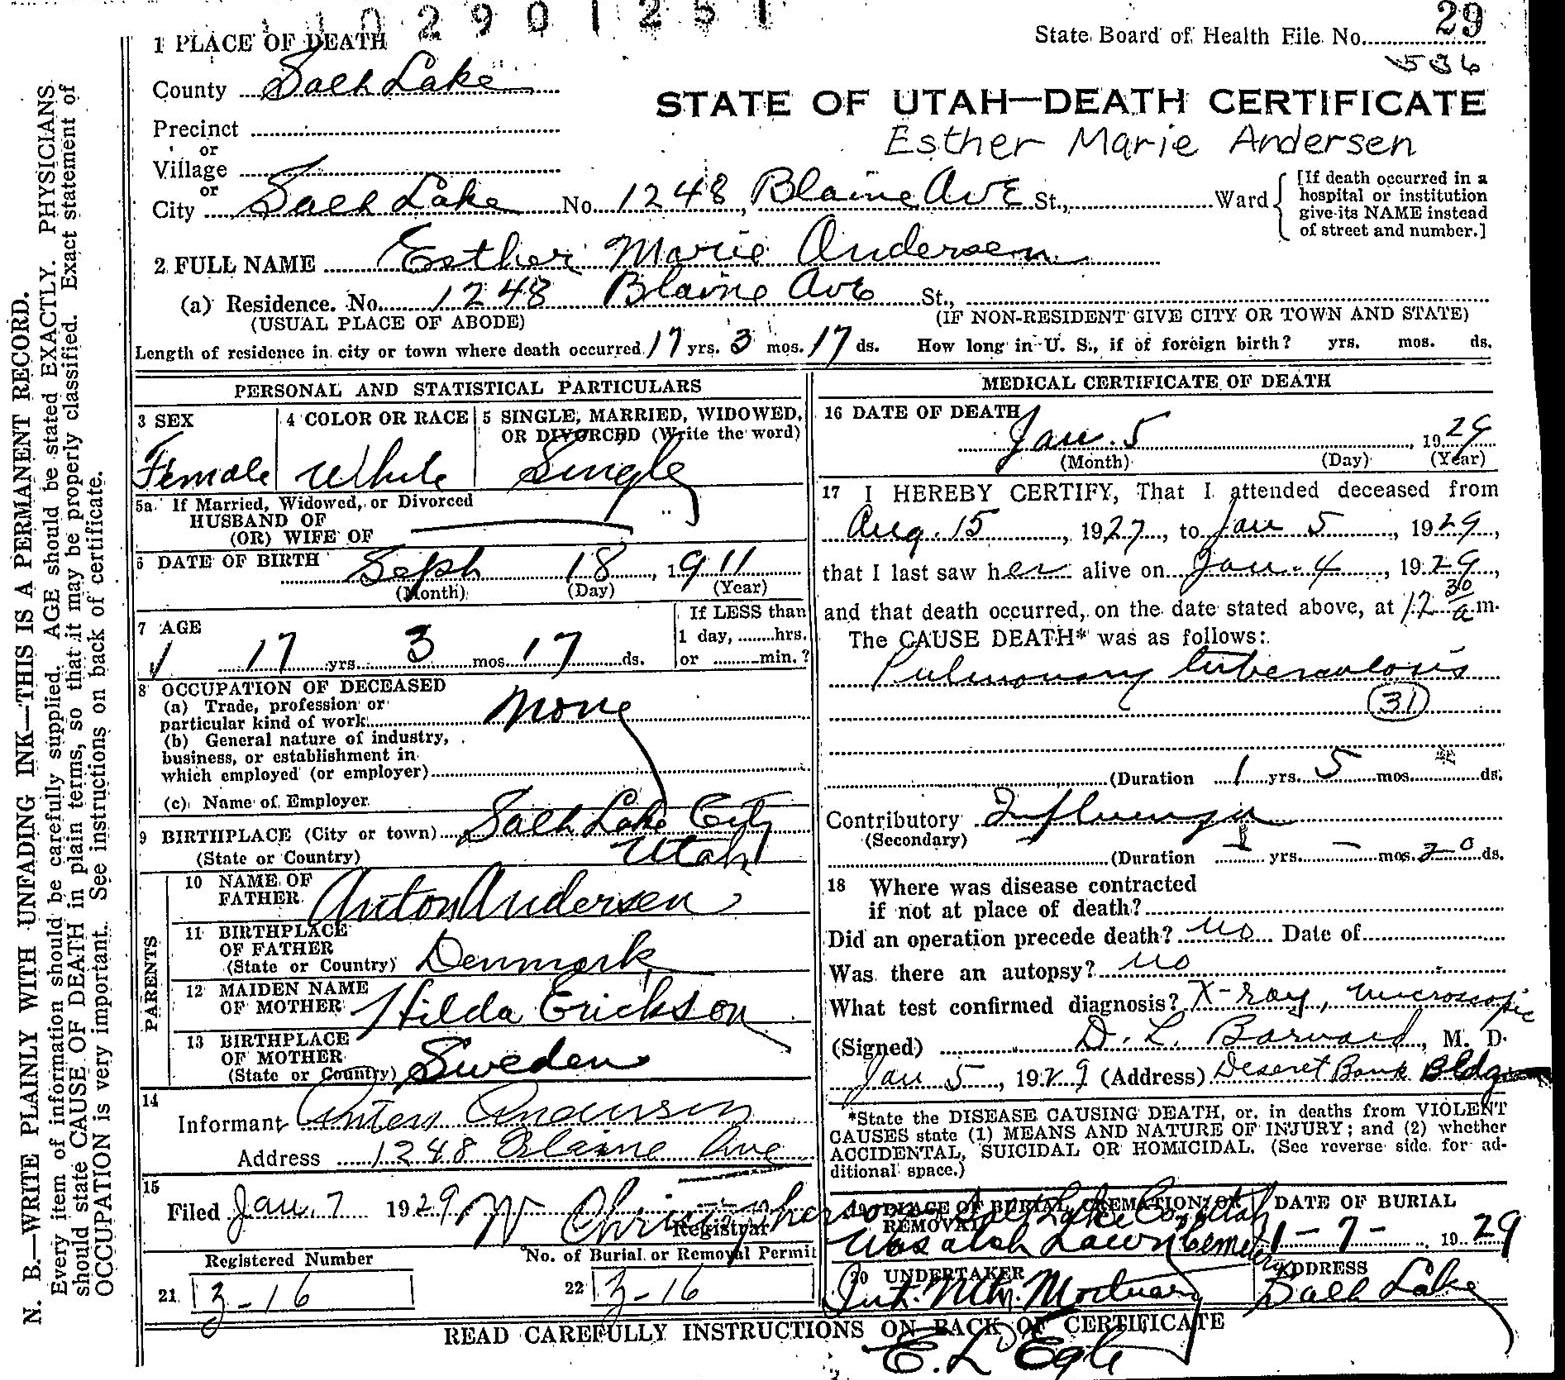 1 0 2 9 0 1 2 5 1
State Board of Health File No. 29
536
1 PLACE OF DEATH
County Salt Lake
STATE OF UTAH—DEATH CERTIFICATE
Precinct
Esther Marie Andersen
or
Village
or
City Salt Lake No. 1248 Blaine Ave St., Ward
[If death occurred in a
hospital or institution
give its NAME instead
of street and number.]
2 FULL NAME Esther Marie Andersen
(a) Residence. No. 1248 Blaine Ave St.,
(USUAL PLACE OF ABODE) (IF NON-RESIDENT GIVE CITY OR TOWN AND STATE)
Length of residence in city or town where death occurred 17 yrs. 3 mos. 17 ds. How long in U. S., if of foreign birth? yrs. mos. ds.
PERSONAL AND STATISTICAL PARTICULARS
3 SEX 4 COLOR OR RACE 5 SINGLE, MARRIED, WIDOWED,
OR DIVORCED (Write the word)
Female White Single
5a If Married, Widowed, or Divorced
HUSBAND OF
(OR) WIFE OF
6 DATE OF BIRTH Sept 18, 1911
(Month) (Day) (Year)
7 AGE
17 yrs. 3 mos. 17 ds.
If LESS than
1 day, hrs.
or min.?
8 OCCUPATION OF DECEASED
(a) Trade, profession or
particular kind of work None
(b) General nature of industry,
business, or establishment in
which employed (or employer)
(c) Name of Employer
9 BIRTHPLACE (City or town) Salt Lake City
(State or Country) Utah
PARENTS
10 NAME OF
FATHER Anton Andersen
11 BIRTHPLACE
OF FATHER
(State or Country) Denmark
12 MAIDEN NAME
OF MOTHER Hilda Erickson
13 BIRTHPLACE
OF MOTHER
(State or Country) Sweden
14
Informant Anton Andersen
Address 1248 Blaine Ave
15
Filed Jan. 7 1929
Registrar
Registered Number No. of Burial or Removal Permit
21 3-16 22 3-16
MEDICAL CERTIFICATE OF DEATH
16 DATE OF DEATH
Jan. 5, 1929
(Month) (Day) (Year)
17 I HEREBY CERTIFY, That I attended deceased from
Aug. 15, 1927, to Jan 5, 1929,
that I last saw her alive on Jan. 4, 1929,
and that death occurred, on the date stated above, at 12 30 a m.
The CAUSE DEATH* was as follows:
Pulmonary tuberculosis
31
(Duration 1 yrs. 5 mos. ds.
Contributory Influenza
(Secondary)
(Duration yrs. - mos. 20 ds.
18 Where was disease contracted
if not at place of death?
Did an operation precede death? no Date of
Was there an autopsy? no
What test confirmed diagnosis? X-ray, microscopic
(Signed) D. L. Barnard, M. D.
Jan 5, 1929 (Address) Deseret Bank Bldg
*State the DISEASE CAUSING DEATH, or, in deaths from VIOLENT
CAUSES state (1) MEANS AND NATURE OF INJURY; and (2) whether
ACCIDENTAL, SUICIDAL OR HOMICIDAL. (See reverse side for ad-
ditional space.)
19 PLACE OF BURIAL, CREMATION OR
REMOVAL
Salt Lake Co Utah
Wasatch Lawn Cemetery
DATE OF BURIAL
1-7- 1929
20 UNDERTAKER ADDRESS
Int. Mtn. Mortuary Salt Lake
READ CAREFULLY INSTRUCTIONS ON BACK OF CERTIFICATE
E. L Egle
N. B.—WRITE PLAINLY WITH UNFADING INK—THIS IS A PERMANENT RECORD.
Every item of information should be carefully supplied. AGE should be stated EXACTLY. PHYSICIANS
should state CAUSE OF DEATH in plain terms, so that it may be properly classified. Exact statement of
OCCUPATION is very important. See instructions on back of certificate.